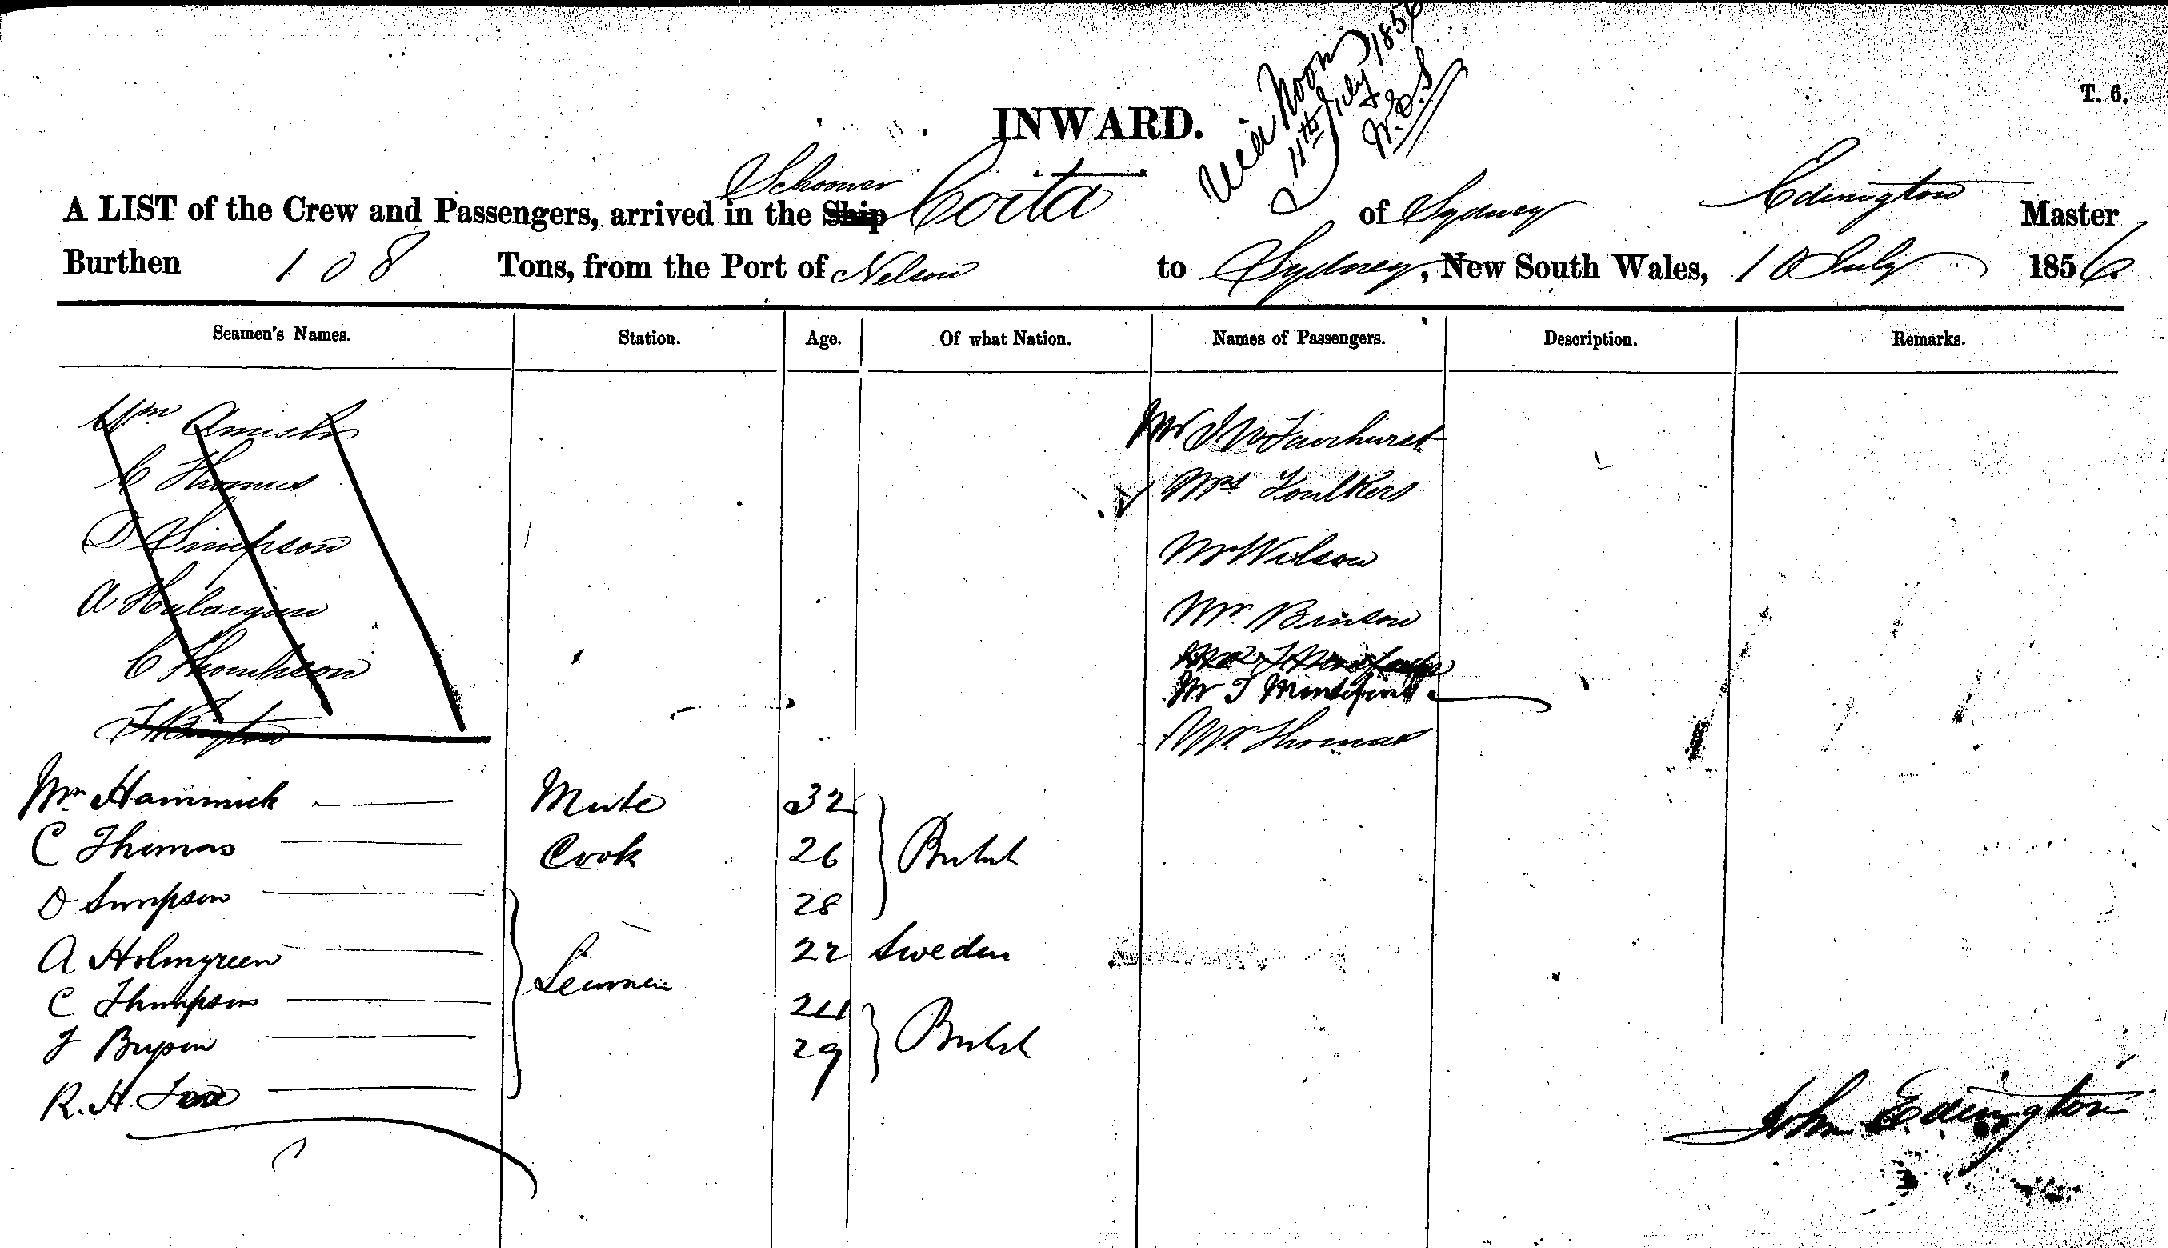 Noon
11th July 1856
W.C.S
T. 6.
INWARD.
Schooner
A LIST of the Crew and Passengers, arrived in the Ship Coita of Sydney Edington Master
Burthen 108 Tons, from the Port of Nelson to Sydney, New South Wales, 10 July 1856
Seamen's Names. Station. Age. Of what Nation. Names of Passengers. Description. Remarks.
Wm Mr J W Fairhurst
C Thomas Mrs Foulkers
D Simpson Mr Wilson
A Mr Binson
C Thompson
Mr T
Mr Thomas
Wm Hammick Mate 32
C Thomas Cook 26 British
D Simpson 28
A Holmgreen 22 Sweden
Seamen
C Thompson 24
J 29 British
R. H.
John Edington